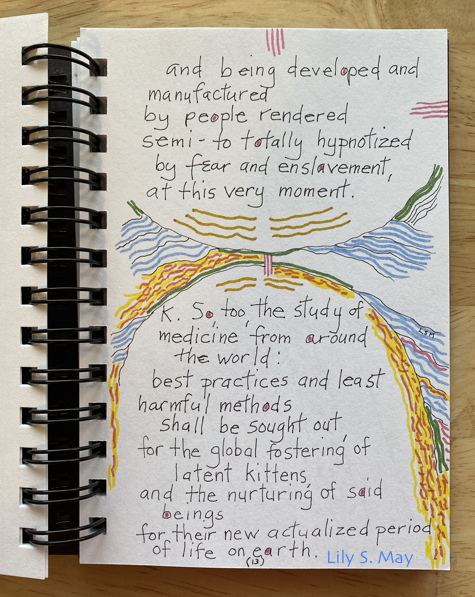 and being developed and
manufactured
by people rendered
semi- to totally hypnotized
by fear and enslavement,
at this very moment.
K. So, too, the study of
medicine from around
the world:
best practices and least
harmful methods
shall be sought out,
for the global fostering of
latent kittens,
and the nurturing of said
beings
for their new actualized period
of life on earth.
(13)
Lily S. May